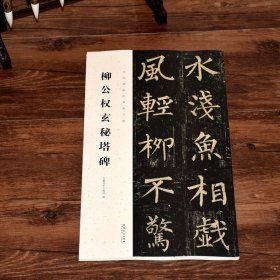 柳公权玄秘塔碑
水淺魚相戲
風輕柳不驚